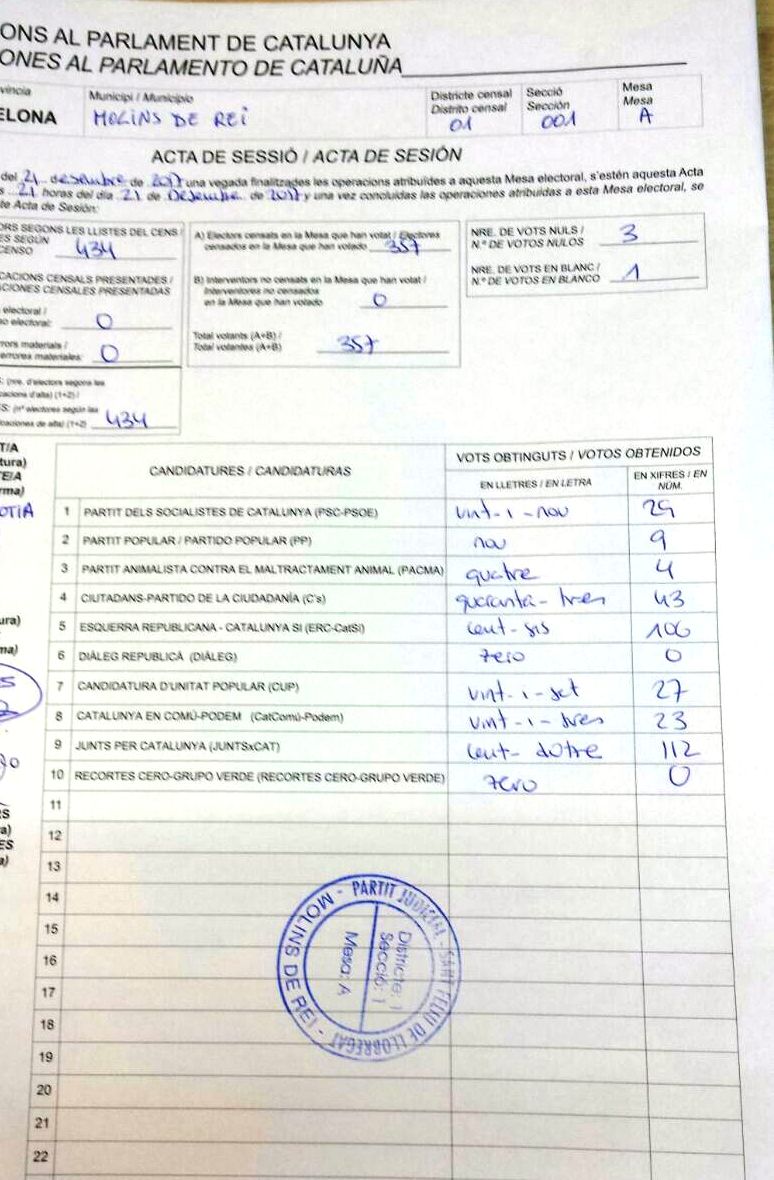 ONS AL PARLAMENT DE CATALUNYA
ONES AL PARLAMENTO DE CATALUÑA
víncia
ELONA
Municipi / Municipio
MOLINS DE REi
Districte censal
Distrito censal
01
Secció
Sección
001
Mesa
Mesa
A
ACTA DE SESSIÓ / ACTA DE SESIÓN
del 21 desembre de 2017 una vegada finalitzades les operacions atribuïdes a aquesta Mesa electoral, s'estén aquesta Acta
s 21 horas del día 21 de Desembre de 2017 y una vez concluidas las operaciones atribuidas a esta Mesa electoral, se
te Acta de Sesión:
ORS SEGONS LES LLISTES DEL CENS /
ES SEGÚN
CENSO 434
CACIONS CENSALS PRESENTADES /
ACIONES CENSALES PRESENTADAS
electoral /
no electoral: 0
rrors materials /
errores materiales: 0
S: (nre. d'electors segons les
cacions d'alta) (1+2) /
ES: (nº electores según las
ficaciones de alta) (1+2) 434
A) Electors censats en la Mesa que han votat / Electores
censados en la Mesa que han votado 357
B) Interventors no censats en la Mesa que han votat /
Interventores no censados
en la Mesa que han votado 0
Total votants (A+B) /
Total votantes (A+B) 357
NRE. DE VOTS NULS /
N.º DE VOTOS NULOS 3
NRE. DE VOTS EN BLANC /
N.º DE VOTOS EN BLANCO 1
TIA
tura)
TEIA
rma)
OTIA
ura)
ma)
S
a)
ES
a)
CANDIDATURES / CANDIDATURAS
VOTS OBTINGUTS / VOTOS OBTENIDOS
EN LLETRES / EN LETRA
EN XIFRES / EN NÚM.
1 PARTIT DELS SOCIALISTES DE CATALUNYA (PSC-PSOE) vint-i-nou 29
2 PARTIT POPULAR / PARTIDO POPULAR (PP) nou 9
3 PARTIT ANIMALISTA CONTRA EL MALTRACTAMENT ANIMAL (PACMA) quatre 4
4 CIUTADANS-PARTIDO DE LA CIUDADANÍA (C's) quaranta-tres 43
5 ESQUERRA REPUBLICANA - CATALUNYA SI (ERC-CatSí) cent-sis 106
6 DIÀLEG REPUBLICÀ (DIÀLEG) zero 0
7 CANDIDATURA D'UNITAT POPULAR (CUP) vint-i-set 27
8 CATALUNYA EN COMÚ-PODEM (CatComú-Podem) vint-i-tres 23
9 JUNTS PER CATALUNYA (JUNTSxCAT) cent-dotre 112
10 RECORTES CERO-GRUPO VERDE (RECORTES CERO-GRUPO VERDE) zero 0
11
12
13
14
15
16
17
18
19
20
21
22
PARTIT JUDICIAL - SANT FELIU DE LLOBREGAT - MOLINS DE REI -
Districte: 1
Secció: 1
Mesa: A